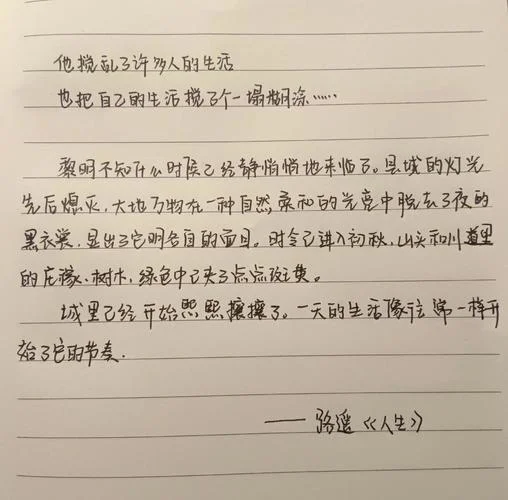 他搅乱了许多人的生活
也把自己的生活搅了个一塌糊涂……
黎明不知什么时候已经静悄悄地来临了。县城的灯光
先后熄灭，大地万物在一种自然柔和的光亮中脱去了夜的
黑衣裳，显出了它明各自的面目。时令已进入初秋，山头和川道里
的庄稼、树木，绿色中已夹了点点斑黄。
城里已经开始熙熙攘攘了。一天的生活像往常一样开
始了它的节奏．
——路遥《人生》